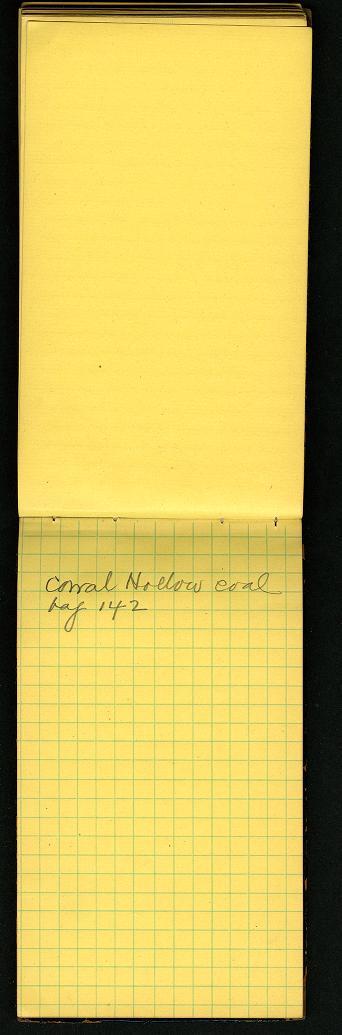 Corral Hollow coal
bag 142